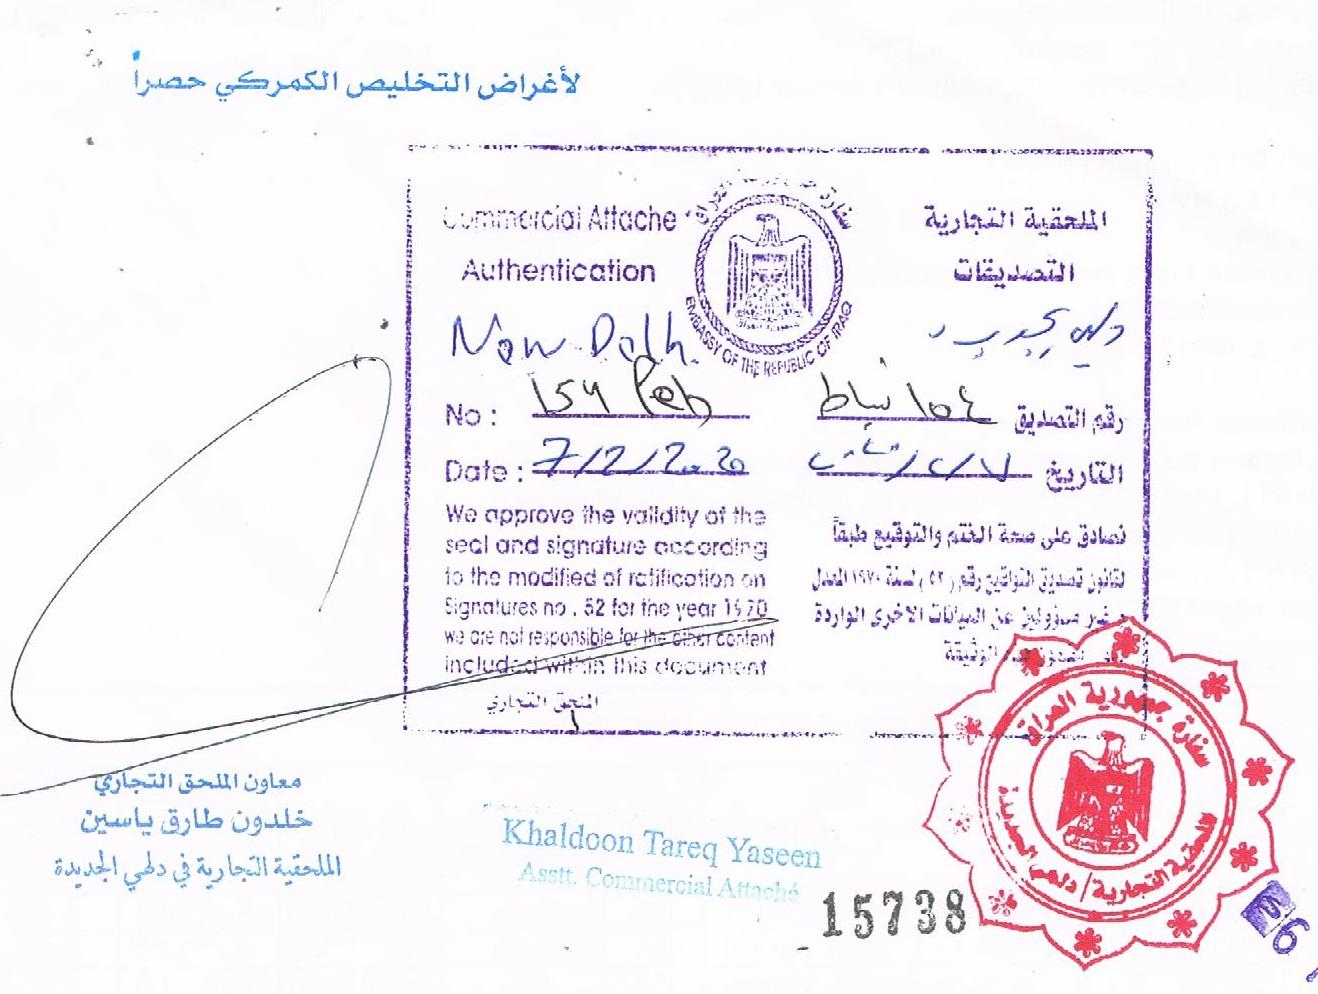 لأغراض التخليص الكمركي حصراً
Commercial Attache
Authentication
New Delhi
No : 154 Feb
Date : 7/2/2020
We approve the validity of the
seal and signature according
to the modified of ratification on
Signatures no . 52 for the year 1970
we are not responsible for the other content
included within this document
الملحق التجاري
سفارة جمهورية العراق
EMBASSY OF THE REPUBLIC OF IRAQ
الملحقية التجارية
التصديقات
رقم التصديق ١٥٤ شباط
التاريخ ٧/٢/
نصادق على صحة الختم والتوقيع طبقاً
لقانون تصديق التواقيع رقم (٥٢) لسنة ١٩٧٠ المعدل
غير مسؤولين عن البيانات الاخرى الواردة
الوثيقة
معاون الملحق التجاري
خلدون طارق ياسين
الملحقية التجارية في دلهي الجديدة
Khaldoon Tareq Yaseen
Asstt. Commercial Attaché
15738
سفارة جمهورية العراق
الملحقية التجارية / دلهي الجديدة